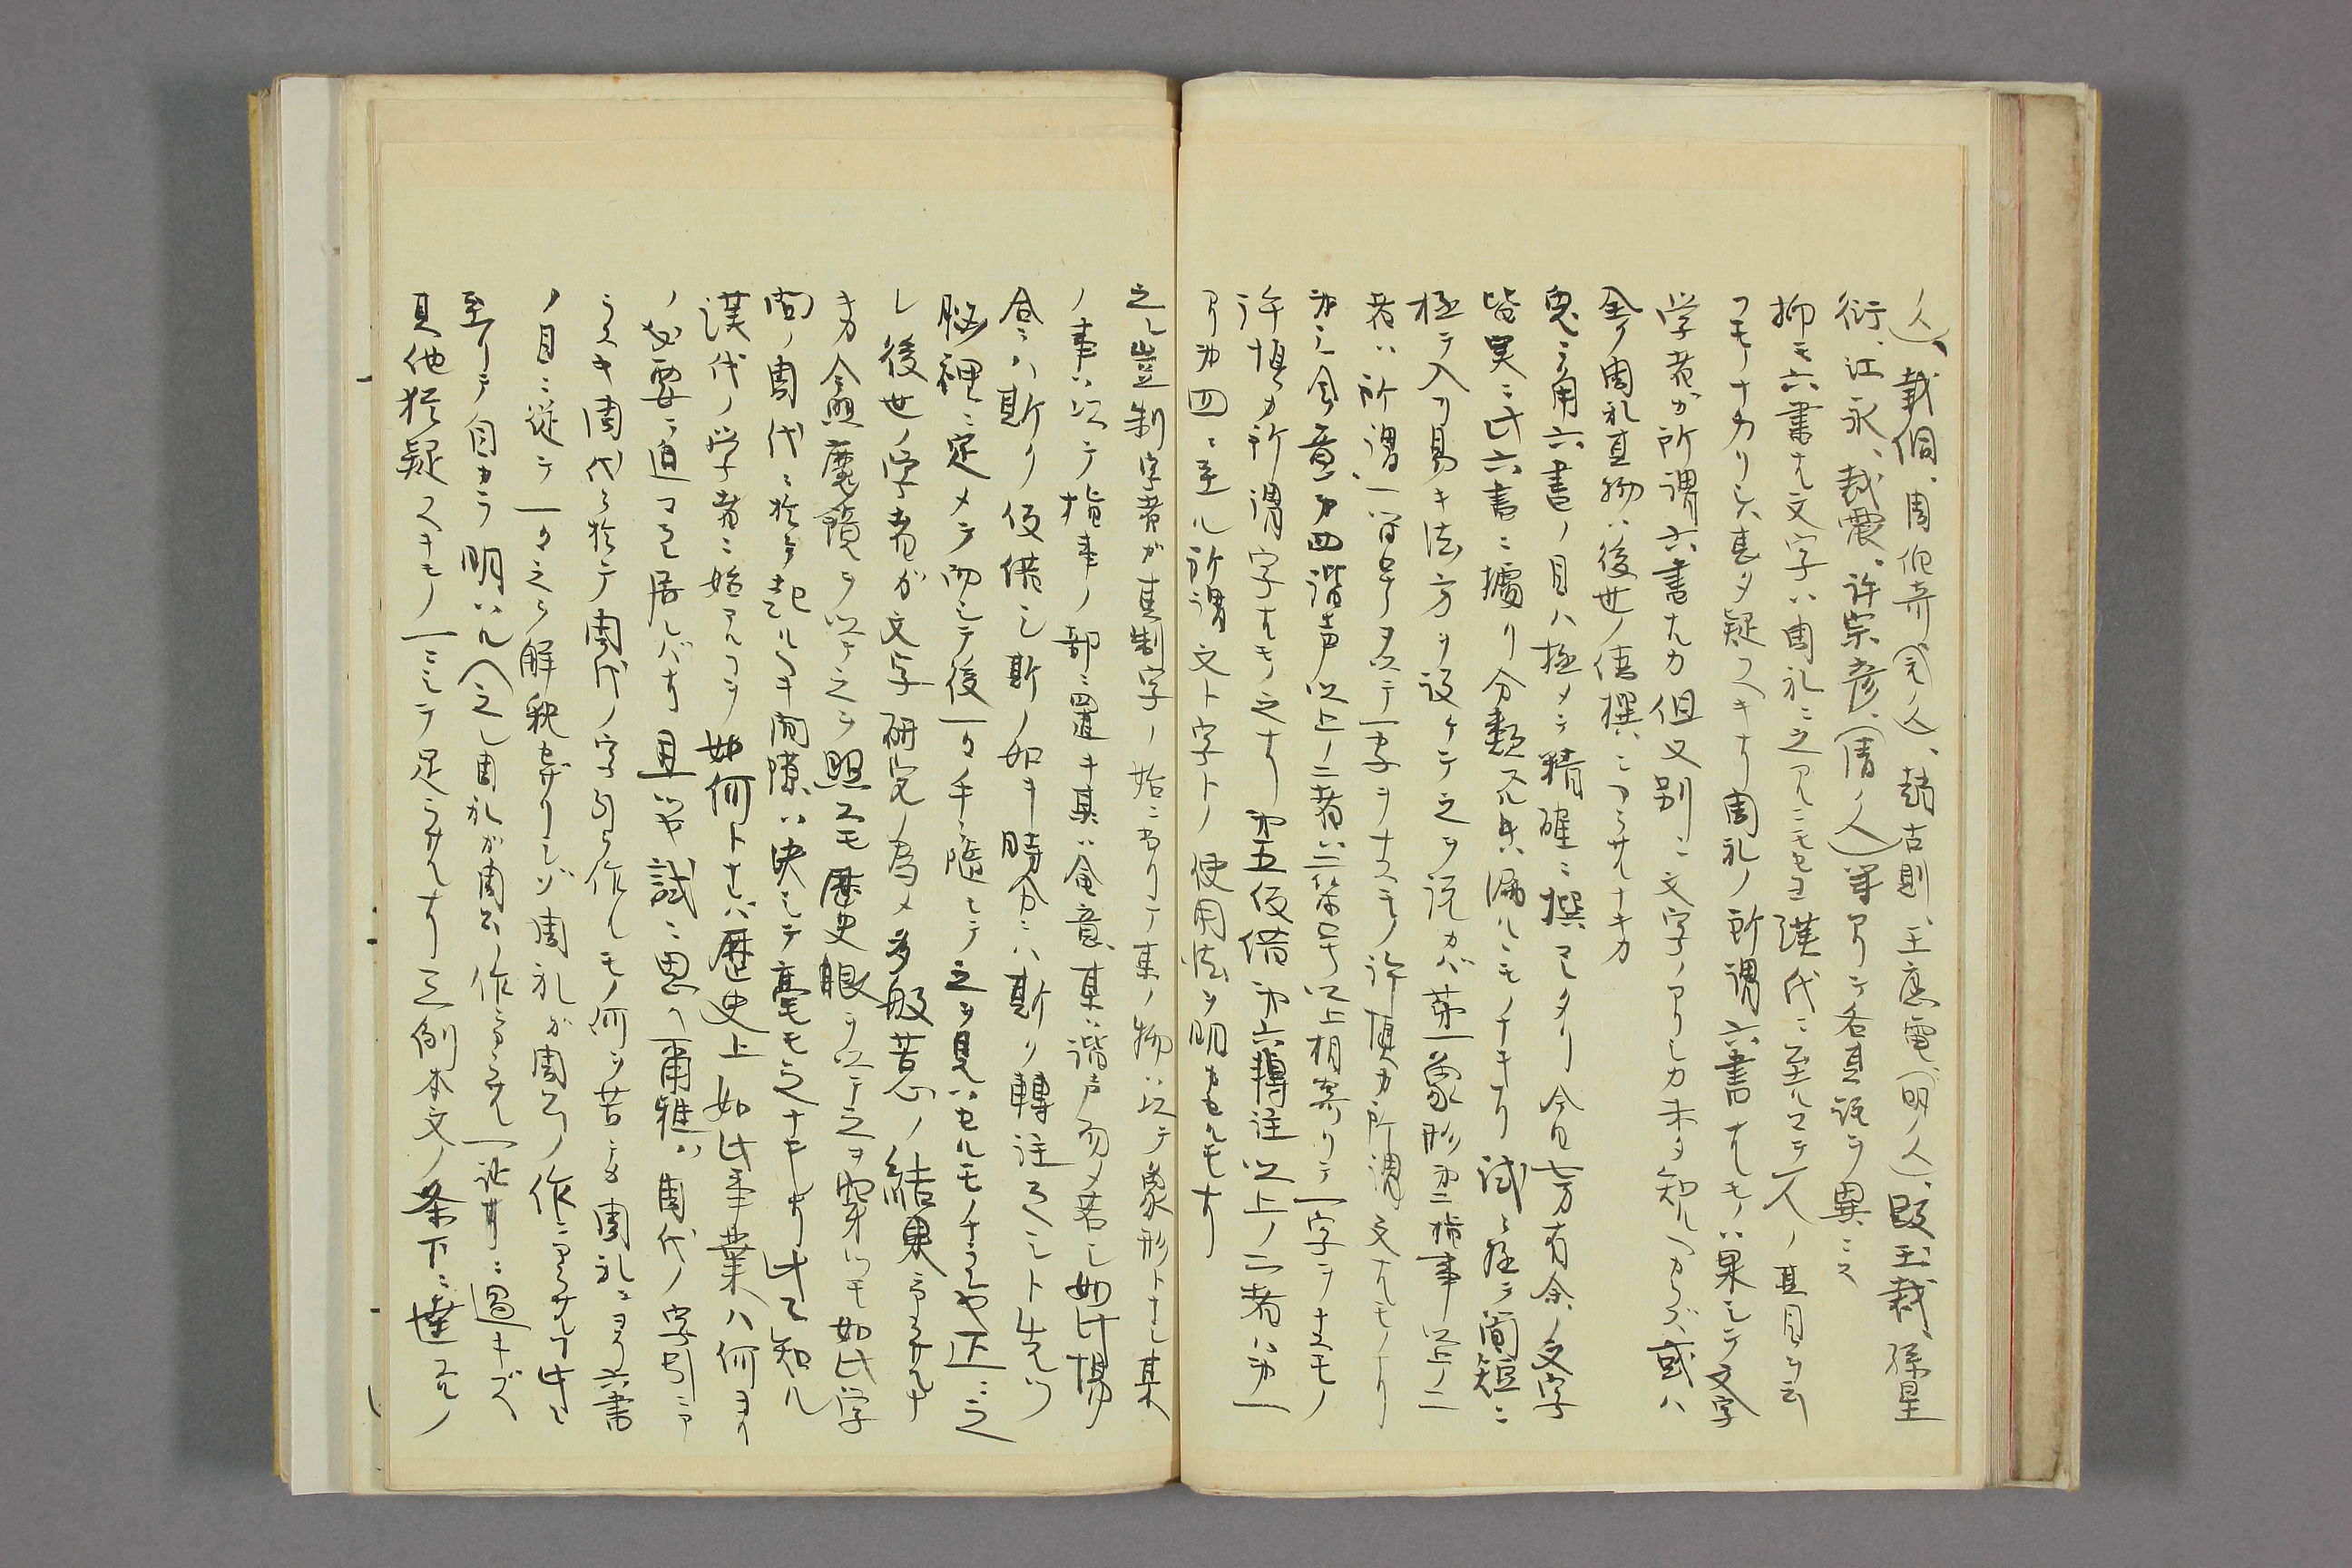 人)、戴侗、周伯奇(元ノ人)、趙古則、王応電(明ノ人)、段玉裁、孫星
衍、江永、戴震、許宗彦、(清ノ人)等アリテ各其説ヲ異ニス
抑モ六書ナル文字ハ周礼ニ之アルニモセヨ漢代ニ至ルマテ一人ノ其目ヲ云
フモノナカリシハ甚タ疑フヘキナリ周礼ノ所謂六書ナルモノハ果シテ文字
学者ガ所謂六書ナルカ但又別ニ文字ノアリシカ未タ知ルヘカラズ、或ハ
全ク周礼其物ハ後世ノ偽撰ニアラサルナキカ
兎ニ角六書ノ目ハ極メテ精確ニ撰マレタリ今日七万有余ノ文字
皆実ニ此六書ニ據リ分類スルキハ漏ルヽモノナキナリ試ニ極テ簡短ニ
極テ入リ易キ法方ヲ設ケテ之ヲ説カバ第一象形第二指事以上ノ二
者ハ所謂一符号ヲ以テ一字ヲナスモノ許慎カ所謂文ナルモノナリ
第三会意第四諧声以上ノ二者ハ二符号以上相寄リテ一字ヲナスモノ
許慎カ所謂字ナルモノ之ナリ第五仮借第六轉注以上ノ二者ハ第一
ヨリ第四ニ至ル所謂文ト字トノ使用法ヲ明カセルモナリ
之レ豈制字者ガ其制字ノ始ニ当リテ某ノ物ハ以テ象形トナシ某
ノ事ハ以テ指事ノ部ニ置キ某ハ会意某ハ諧声ノ若シ如此場
合ニハ斯ク仮借シ斯ノ如キ時分ニハ斯ク轉注スヘシト先ツ
脳裡ニ定メテ而シテ後一々手ニ随シテ之ヲ見ハセルモノナランヤ正ニ之
レ後世ノ学者ガ文字研究ノ為メ多般苦心ノ結果ニ
キカ今照魔鏡ヲ以テ之ヲ照スモ歴史眼ヲ以テ之ヲ穿ツモ如此学
問ノ周代ニ於テ起ルヘキ間隙ハ決シテ毫モ之ナキナリ此レ知ル
漢代ノ学者ニ始マルコヲ如何トナレバ歴史上如此事業ハ何ヨリ
ノ必要ニ迫マレ居レバナリ且ツヤ試ニ思ヘ爾雅ハ周代ノ字引ニ
スヘキ周代ニ於テ周代ノ字引ヲ作ルモノ何ヲ苦シンテ周礼ニヨリ六書
ノ目ニ従テ一々之ヲ解釈セザリシゾ周礼ガ周公ノ作ニアラサルコ此ニ
至リテ自カラ明ハル(之レ周礼ガ周公ノ作ニアラサル一証
其他猶疑スヘキモノ一ニシテ足ラサルナリ三例本文ノ条下ニ